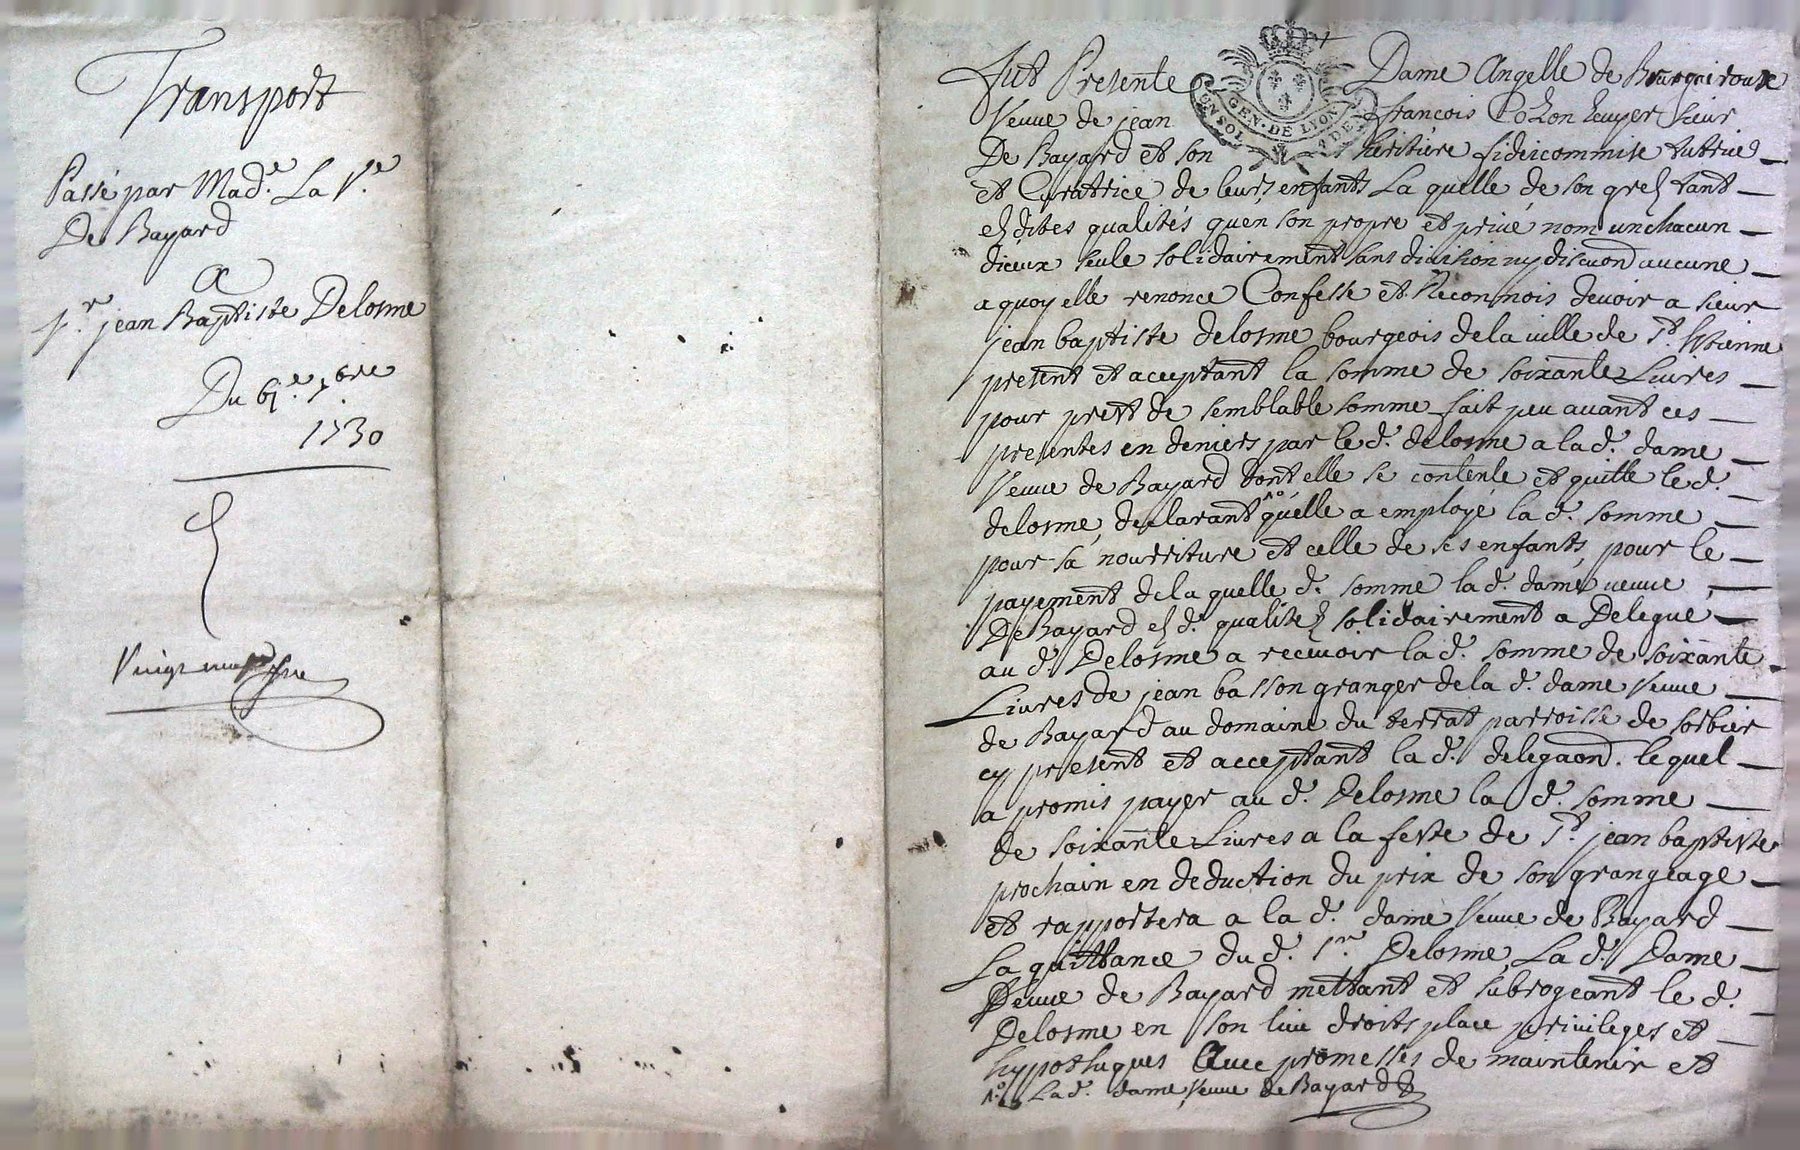 Transport
Passé par Mad.e La V.e
De Bayard
A
S.r jean Baptiste Delosme
Du 6.e 7bre
1730
Fut Presente Dame Angelle de
GEN · DE LYON
Veuve de jean françois Cohon Ecuyer sieur
De Bayard et son héritière fideicommise tutrice
et Curatrice de leurs enfants La quelle de son gre tant
esdites qualités quen son propre et privé nom un chacun
diceux seule solidairement sans division ny discuon aucune
a quoy elle renonce Confesse et Reconnois devoir a sieur
jean baptiste delosme bourgeois dela ville de St. Estienne
present et acceptant la somme de soixante Livres
pour prest de semblable somme fait peu avant ces
presentes en deniers par le d. delosme a la d. dame
Veuve de Bayard dont elle se contente et quitte le d.
delosme, declarant 1o quelle a employé la d. somme
pour sa nourriture et celle de ses enfants, pour le
payement dela quelle d. somme la d. dame veuve
De Bayard esd. qualites solidairement a Delegue
au d. Delosme a recevoir la d. somme de soixante
Livres de jean basson granger dela d. dame Veuve
de Bayard au domaine du terrat parroisse de sorbier
cy present et acceptant la d. delegaon. lequel
a promis payer au d. Delosme la d. somme
de soixante Livres a la feste de St. jean baptiste
prochain en deduction du prix de son grangeage
et rapportera a la d. dame Veuve de Bayard
La quittance du d. Sr. Delosme, La d. Dame
Veuve de Bayard mettant et subrogeant le d.
Delosme en son lieu droits place privileges et
hypotheques Avec promesses de maintenir et
1o La d. dame veuve de Bayard